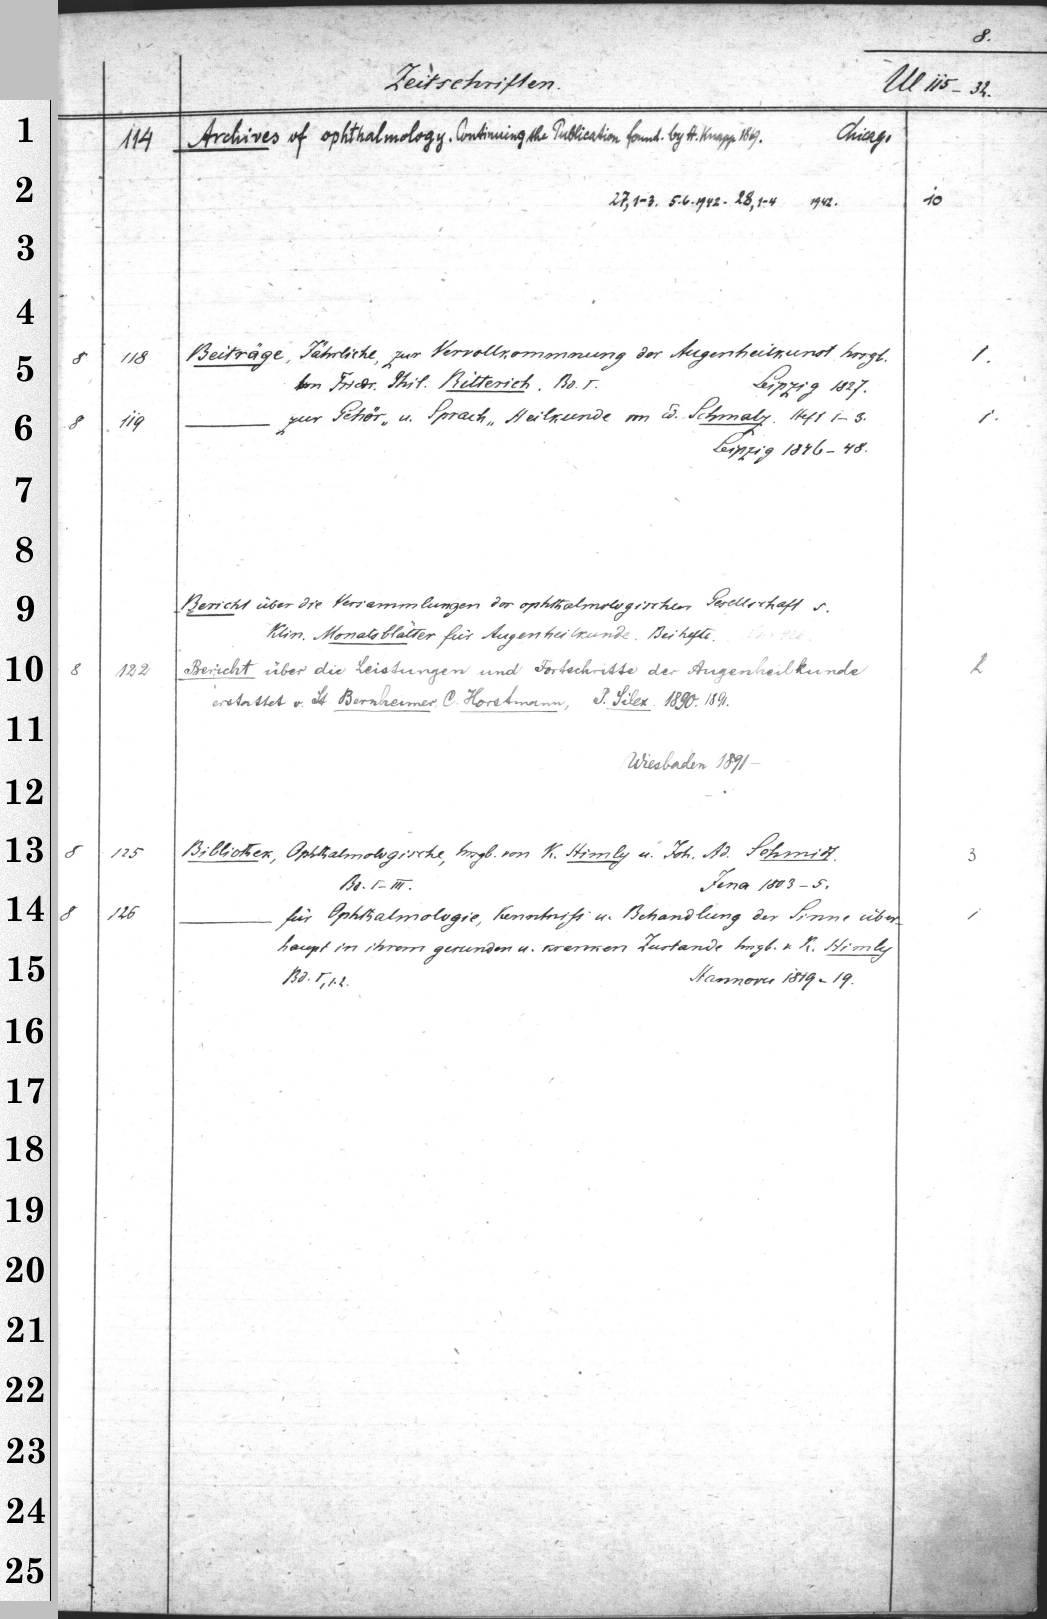 8.
Zeitschriften. Ul 115-32.
1 114 Archives of ophthalmology. Continuing the Publication found. by H. Knapp 1869. Chicago
2 27,1-3. 5.6.1942- 28,1-4 1942. 10
3
4
5 8 118 Beiträge, Jährliche, zur Vervollkommnung der Augenheilkunst hrsgb. 1.
von Friedr. Phil. Ritterich. Bd. I. Leipzig 1827.
6 8 119 zur Gehör„ u. Sprach„ Heilkunde von Ed. Schmalz. Heft 1-3. 1.
Leipzig 1846-48.
7
8
9 Bericht über die Versammlungen der ophthalmologischen Gesellschaft s.
Klin. Monatsblätter für Augenheilkunde. Beihefte.
10 8 122 Bericht über die Leistungen und Fortschritte der Augenheilkunde 2
erstattet v. St Bernheimer, C. Horstmann, P. Silex. 1890. 1891.
11
Wiesbaden 1891-
12
13 8 125 Bibliothek, Ophthalmologische, hrsgb. von K. Himly u. Joh. Ad. Schmidt. 3
Bd. I-III. Jena 1803-5.
14 8 126 für Ophthalmologie, Kenntniß u. Behandlung der Sinne über- 1
haupt in ihrem gesunden u. kranken Zustande hrsgb. v. K. Himly
15 Bd. I, 1.2. Hannover 1819-19.
16
17
18
19
20
21
22
23
24
25